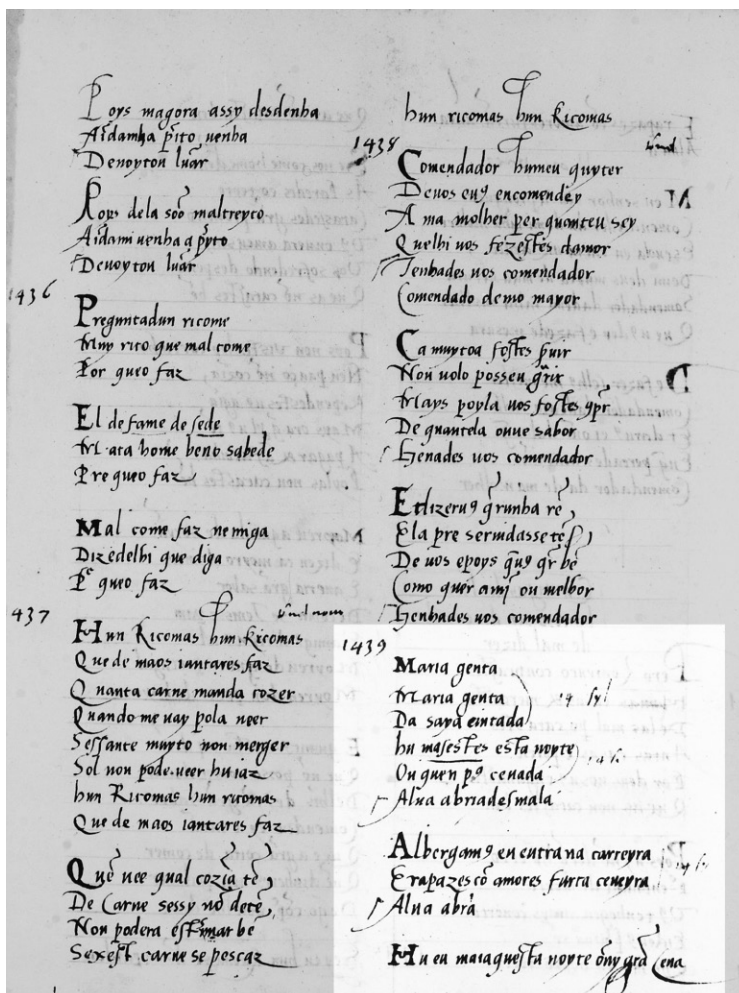 Poys magora assy desdenha
Aidamha pito uenha
Deuoyton luar
Poys dela soo maltreyto
Aidami uenha a pyto
Deuoyton luar
1436
Preguntadun ricome
Muy rito que mal come
Por queo faz
El de fame de sede
Mata home beno sabede
Pre queo faz
Mal come faz nemiga
Dizedelhi que diga
queo faz
1437
Hun Ricomas hun Ricomas
Que de maos iantares faz
Quanta carne manda cozer
Quando me uay pola ueer
Sessante muyto non merger
Sol non pode ueer hu iaz
hun Ricomas hun ricomas
Que de maos iantares faz
Quē uee qual cozia tē
De Carne sessy nō detē
Non podera estimar bē
Sexest carne se pescaz
hun ricomas hun Ricomas
1438
Comendador humeu quyter
Deuos eu9 encomendey
A ma molher per quanteu sey
Quelhi uos fezestes damor
Tenhades uos comendador
Comendado demo mayor
Ca muytoa fostes ſuir
Non uolo posseu grix
Mays poyla uos fostes gpr
De quantela ouue sabor
Tenades uos comendador
Edizeru9 grunha rē
Ela pre seruidassetē
De uos epoys qu9 qr bē
Como quer ami ou melhor
Tenhades uos comendador
1439
Maria genta
Maria genta 14 syl
Da saya cintada
hu masestes esta noyte 14
Ou quen p9 ceuada
Alua abriadesmala
Albergam9 eu eutra na carreyra
Erapazes cō amores furta ceueyra
Alua abra
Hu eu maiaquesta noyte ouuy grā Cena